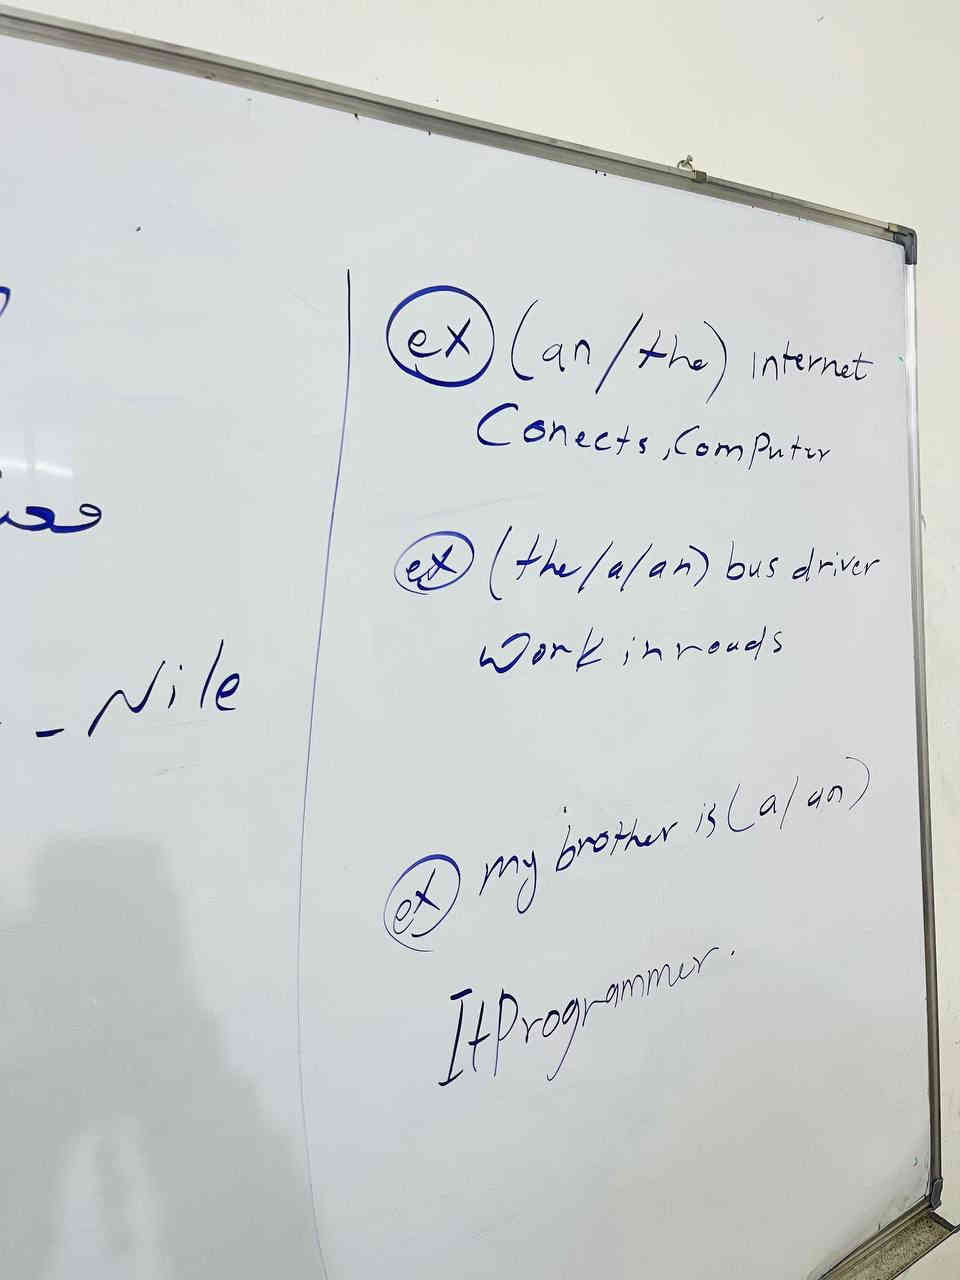 - Nile
ex (an/the) internet
Conects, Computer
ex (the/a/an) bus driver
work in roads
ex my brother is (a/an)
It Programmer.